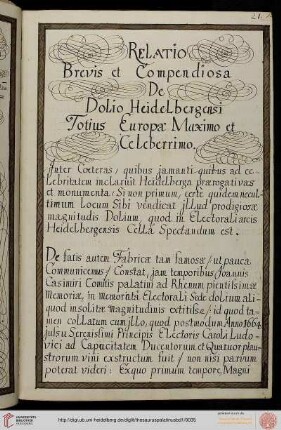 RELATIO
Brevis et Compendiosa
De
Dolio Heidelbergensi
Totius Europæ Maximo et
Celeberrimo.
Inter Cœteras, quibus jamanti quibus ad ce-
lebritatem inclaruit Heidelberga prærogativas
et monumenta: Si non primum, certe quidem necul-
timum Locum Sibi vendicat jllud prodigiosæ
magnitudis Dolium, quod in Electorali arcis
Heidelbergensis Cella Spectandum est.
De fatis autem Fabricæ tam famosæ, ut pauca
Communicemus, Constat, jam temporibus Joannis
Casimiri Comitis palatini ad Rhenum pientissimæ
Memoriæ, in memorata Electorali Sede dolium ali-
quod insolitæ magnitudinis extitisse, id quod ta-
men collatum cum jllo, quod postmodum Anno 1664
jussu Serenissimi Principis Electoris Caroli Ludo-
vici ad Capacitatem Ducentorum et Quatuor plau-
strorum vini exstructum fuit, non nisi parvum
poterat videri: Ex quo primum tempore Magni
http://digi.ub.uni-heidelberg.de/diglit/thesauruspalatinusbd1/0035